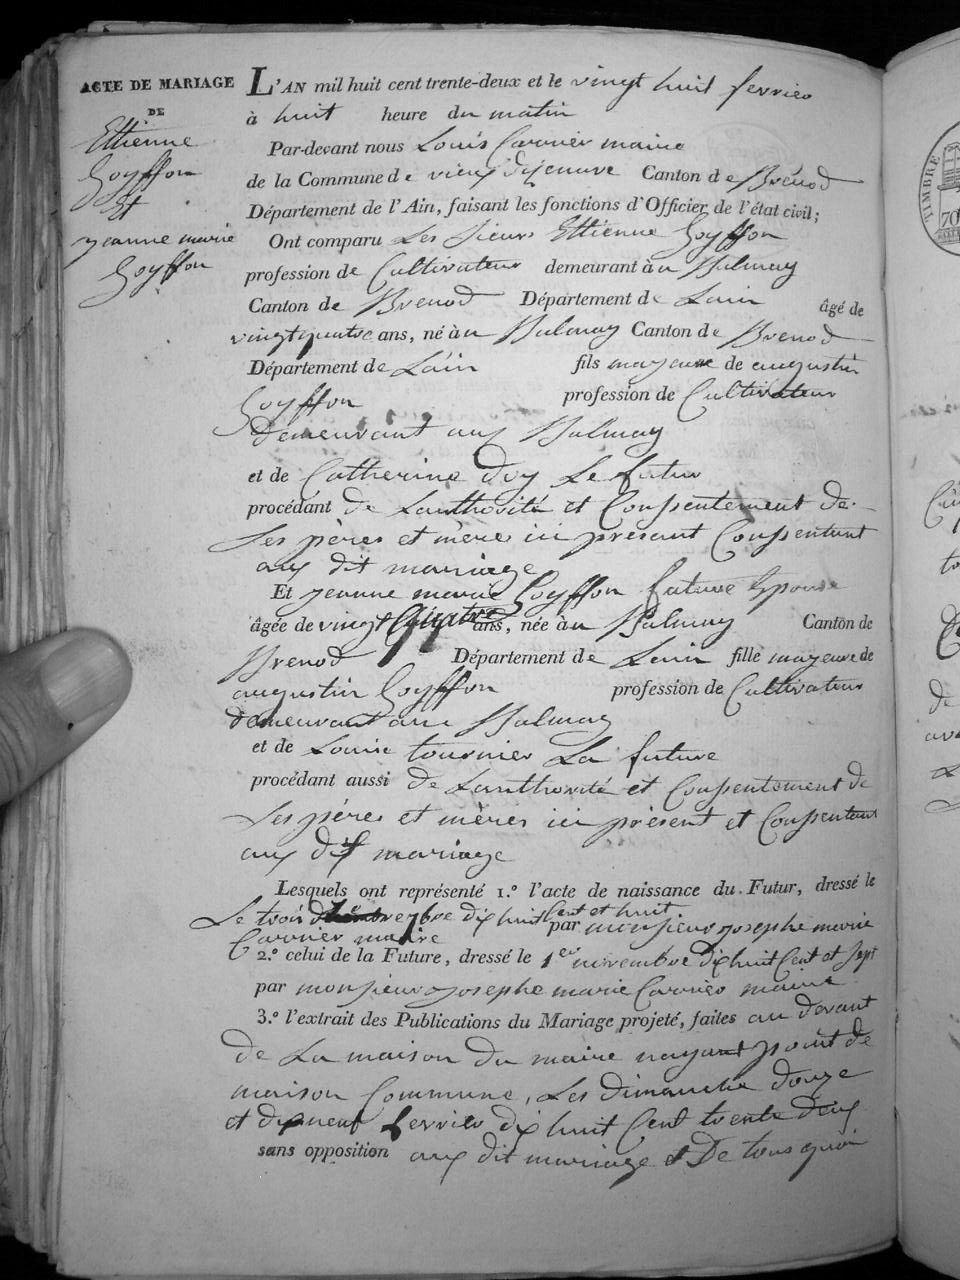 ACTE DE MARIAGE
DE
Ettienne
Goyffon
Et
jeanne marie
Goyffon
L'AN mil huit cent trente-deux et le vingt huit fevrier
à huit heure du matin
Par-devant nous Louis Carrier maire
de la Commune de vieux dizenave Canton de Brénod
Département de l'Ain, faisant les fonctions d'Officier de l'état civil;
Ont comparu Les Sieurs Ettienne Goyffon
profession de Cultivateur demeurant à u Balmay
Canton de Brenod Département de Lain âgé de
vingtquatre ans, né à u Balmay Canton de Brenod
Département de Lain fils mayeure de augustin
Goyffon profession de Cultivateur
demeurant aux Balmay
et de Catherine Le futur
procédant de Lauthorité et Consentement de
Ses pères et mères ici présant Consentant
aux dit mariage
Et jeanne marie Goyffon future Epouse
âgée de vingt quatre ans, née à u Balmay Canton de
Brenod Département de Lain fille mayeure de
augustin Goyffon profession de Cultivateur
demeurant au Balmay
et de Louise tournier La future
procédant aussi de Lauthorité et Consentement de
Ses pères et mères ici présent et Consentant
aux dit mariage
Lesquels ont représenté 1.º l'acte de naissance du Futur, dressé le
Le trois dix huit Cent et huit
par monsieur josephe marie
Carrier maire
2.º celui de la Future, dressé le 1er novembre dix huit Cent et sept
par monsieur josephe marie Carrier maire
3.º l'extrait des Publications du Mariage projeté, faites au devant
de La maison du maire nayant point de
maison Commune, Les dimanche douze
et dixneuf fevrier dix huit Cent trente deux
sans opposition aux dit mariage De tous quoi
TIMBRE
70